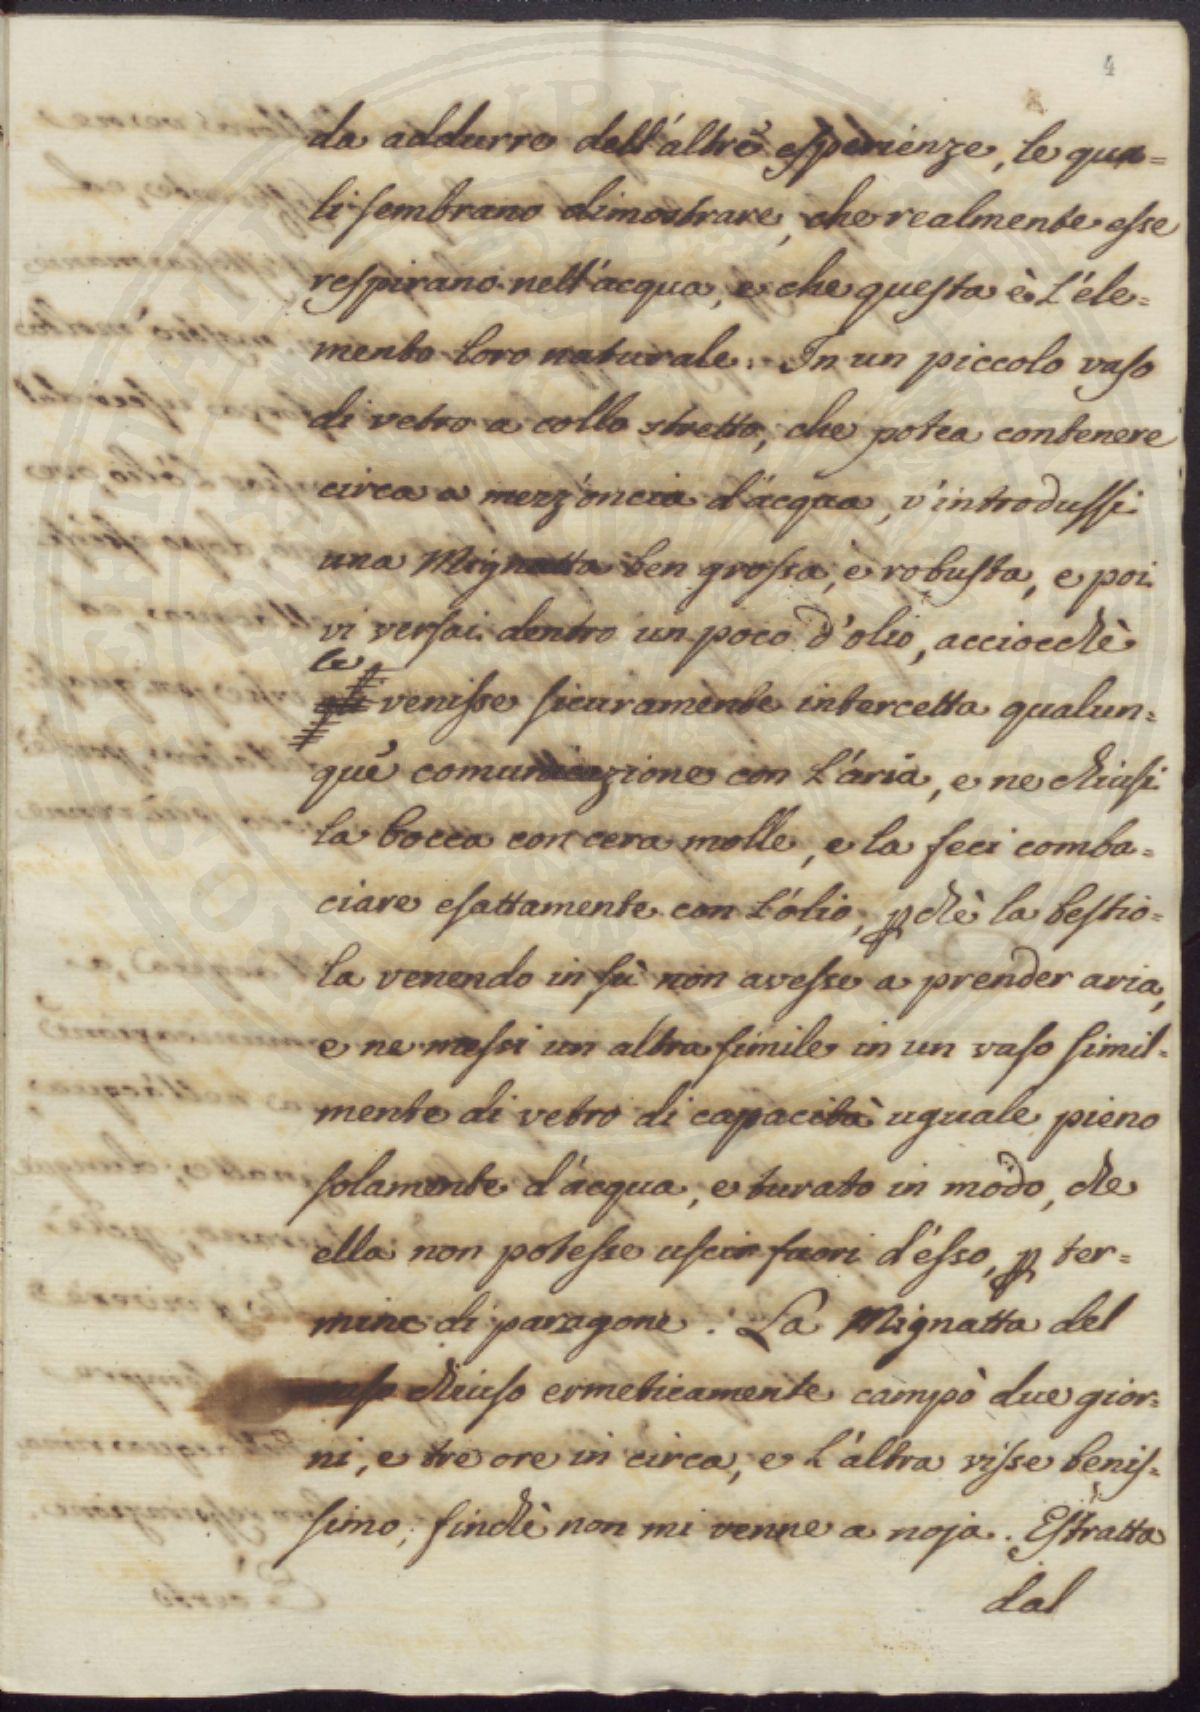 4
da addurre dell'altre esperienze, le qua=
li sembrano dimostrare, che realmente esse
respirano nell'acqua, e che questa è l'ele=
mento loro naturale. In un piccolo vaso
di vetro a collo stretto, che potea contenere
circa a mezz'oncia d'acqua, v'introdussi
una Mignatta ben grossa, e robusta, e poi
vi versai dentro un poco d'olio, acciocchè
le
venisse sicuramente intercetta qualun=
que comunicazione con l'aria, e ne chiusi
la bocca con cera molle, e la feci comba=
ciare esattamente con l'olio, pchè la bestio=
la venendo in sù non avesse a prender aria,
e ne messi un altra simile in un vaso simil=
mente di vetro di capacità uguale pieno
solamente d'acqua, e turato in modo, che
ella non potesse uscir fuori d'esso, p ter=
mine di paragone. La Mignatta del
vaso chiuso ermeticamente campò due gior=
ni, e tre ore in circa, e l'altra visse benis=
simo, finchè non mi venne a noja. Estratta
dal